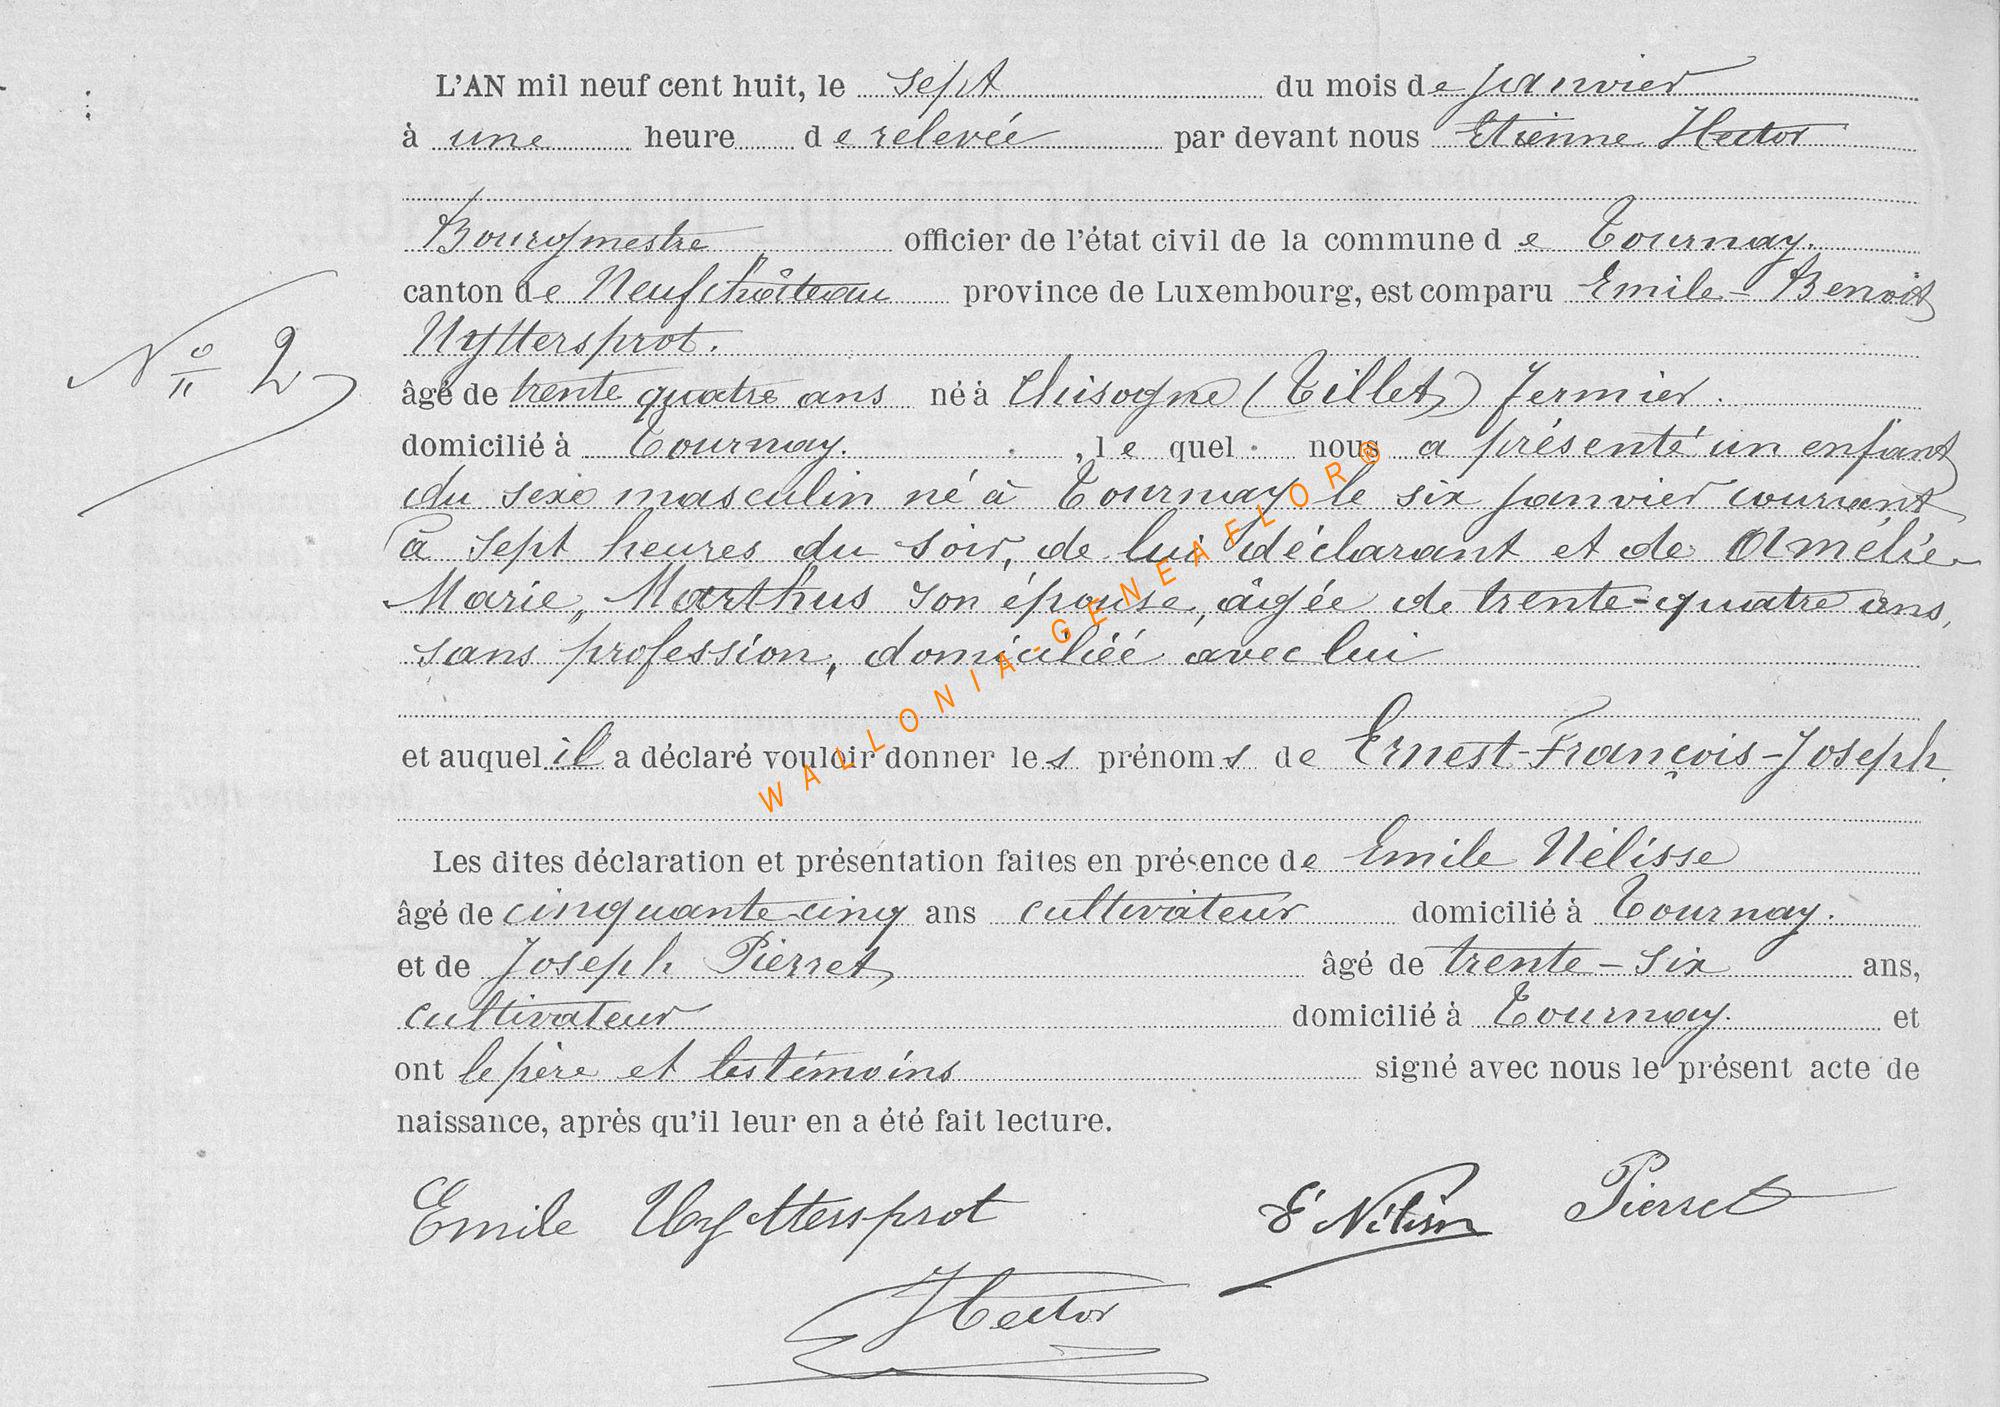 L'AN mil neuf cent huit, le sept du mois de janvier
à une heure de relevée par devant nous Etienne Hector
Bourgmestre officier de l'état civil de la commune de Tournay.
canton de Neufchâteau province de Luxembourg, est comparu Emile-Benoit
Uyttersprot.
N° 2
âgé de trente quatre ans né à Chisogne (Tillet) fermier.
domicilié à Tournay. , le quel nous a présenté un enfant
du sexe masculin né à Tournay le six janvier courant
à sept heures du soir, de lui déclarant et de Amélie
Marie, Marthus son épouse, âgée de trente-quatre ans,
sans profession, domiciliée avec lui
et auquel il a déclaré vouloir donner les prénoms de Ernest-François-Joseph.
WALLONIA-GENEAFLOR®
Les dites déclaration et présentation faites en présence de Emile Nélisse
âgé de cinquante-cinq ans cultivateur domicilié à Tournay.
et de Joseph Pierret âgé de trente-six ans,
cultivateur domicilié à Tournay. et
ont le père et les témoins signé avec nous le présent acte de
naissance, après qu'il leur en a été fait lecture.
Emile Uyttersprot E Nélisse Pierret
Hector